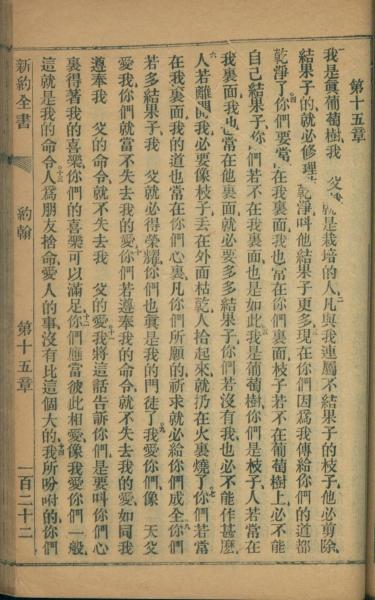 第十五章
我是眞葡萄樹、我 父就是栽培的人、二凡與我連屬不結果子的枝子、他必剪除、
結果子的、就必修理乾淨、叫他結果子更多、三現在你們因爲我傳給你們的道、都
乾淨了、四你們要常在我裏面、我也常在你們裏面、枝子若不在葡萄樹上、必不能
自己結果子、你們若不在我裏面、也是如此、五我是葡萄樹、你們是枝子、人若常在
我裏面、我也常在他裏面、就必要多多結果子、你們若沒有我、也必不能作甚麼、六
人若離開我、必要像枝子丟在外面枯乾、人拾起來就扔在火裏燒了、七你們若常
在我裏面、我的道也常在你們心裏、凡你們所願的、祈求就必給你們成全、八你們
若多結果子、我 父就必得榮耀、你們也眞是我的門徒了、九我愛你們、像 天父
愛我、你們就當不失去我的愛、十你們若遵奉我的命令、就不失去我的愛、如同我
遵奉我 父的命令、就不失去我 父的愛、十一我將這話告訴你們、是要叫你們心
裏得著我的喜樂、你們的喜樂可以滿足、十二你們應當彼此相愛、像我愛你們一般、
這就是我的命令、十三人爲朋友捨命、愛人的事、沒有比這個大的、十四我所吩咐的、你們
新約全書 約翰 第十五章 一百二十二